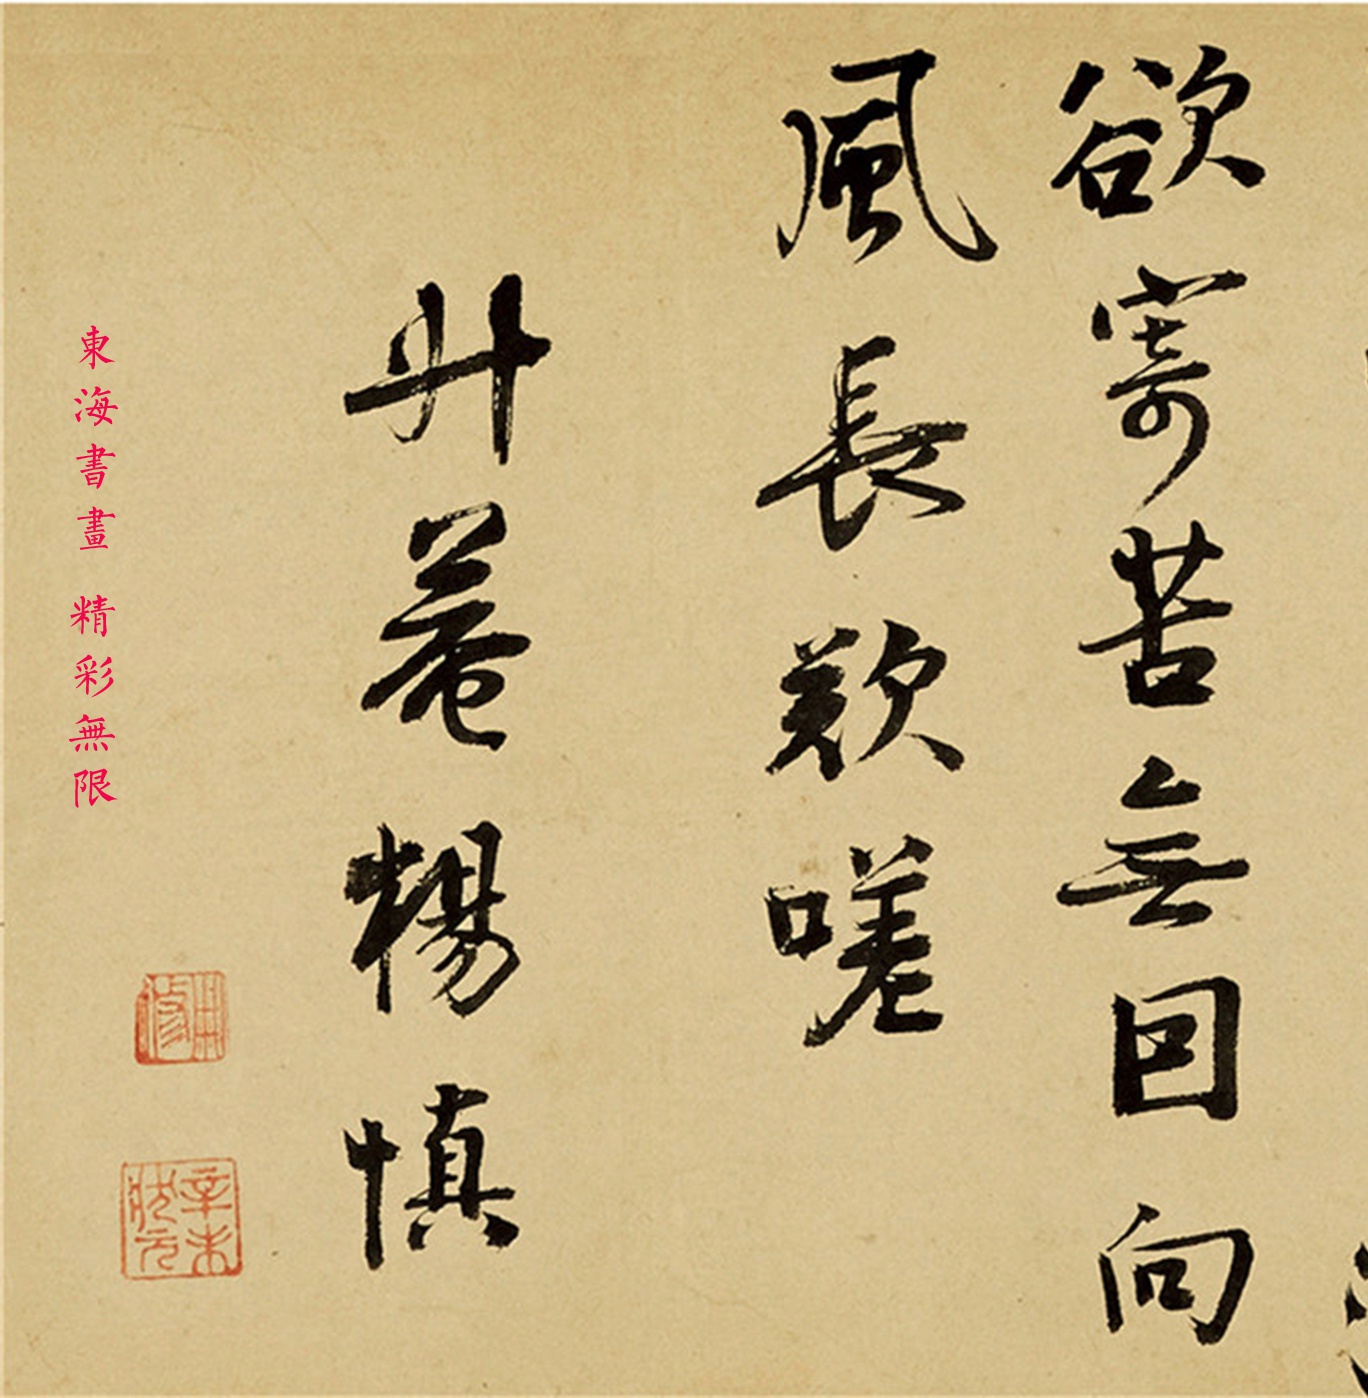 欲寄苦無因向
風長歎嗟
升菴楊慎
東海書畫 精彩無限
用修
辛未狀元